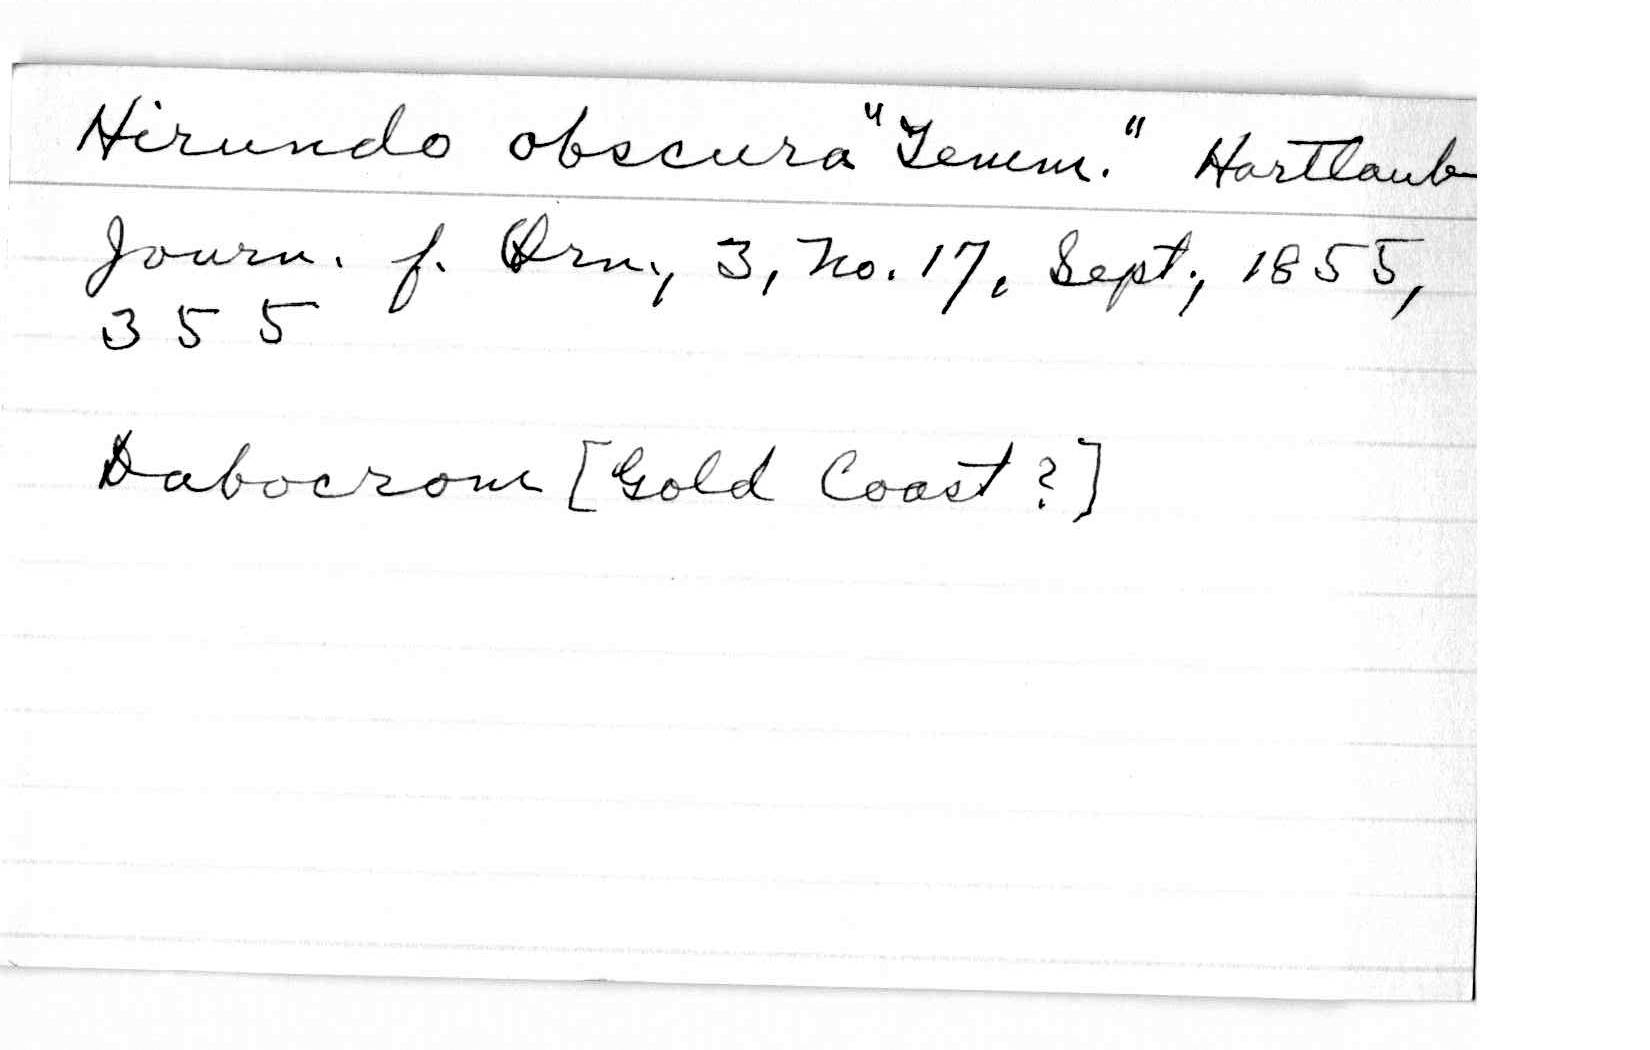 Hirundo obscura "Temm." Hartlaub
Journ. f. Orn., 3, No. 17, Sept., 1855,
355
Dabocrom [Gold Coast?]